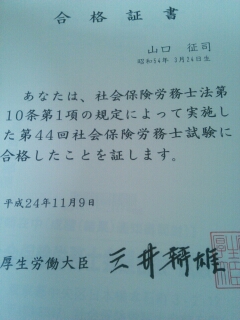 合格証書
山口 征司
昭和54年 3月24日生
あなたは、社会保険労務士法第
10条第1項の規定によって実施し
た第44回社会保険労務士試験に
合格したことを証します。
平成24年11月9日
厚生労働大臣 三井辨雄